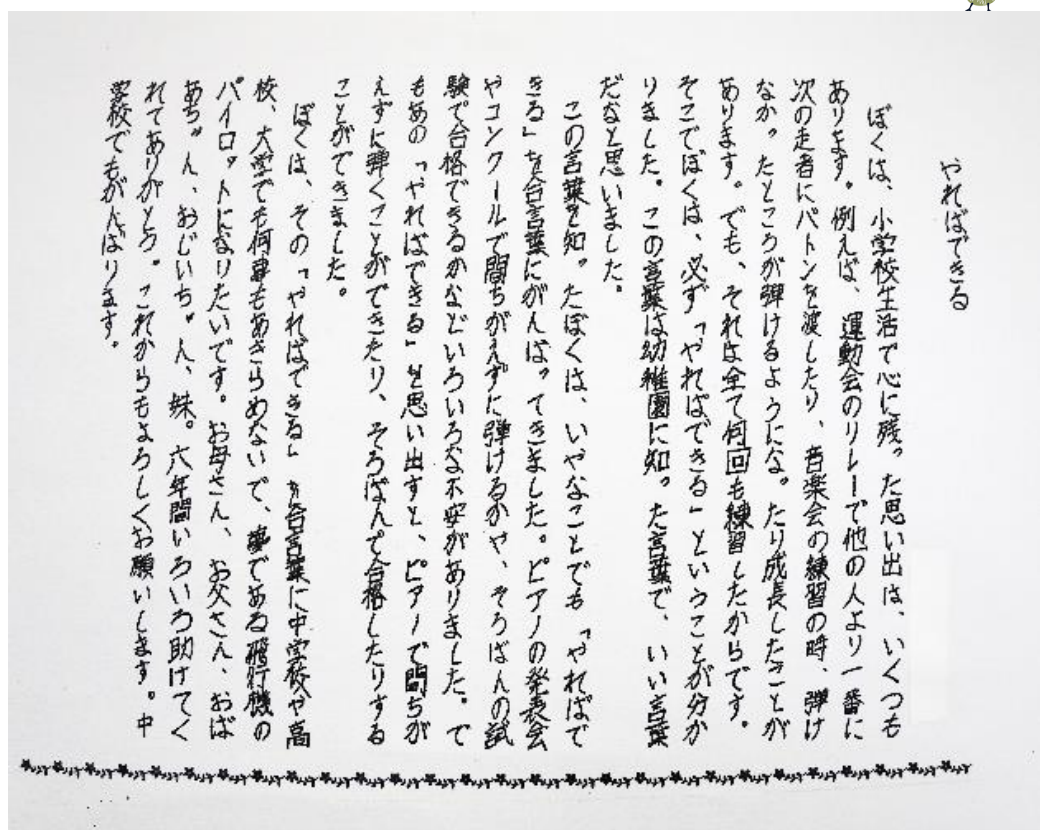 やればできる
ぼくは、小学校生活で心に残った思い出は、いくつも
あります。例えば、運動会のリレーで他の人より一番に
次の走者にバトンを渡したり、音楽会の練習の時、弾け
なかったところが弾けるようになったり成長したことが
あります。でも、それは全て何回も練習したからです。
そこでぼくは、必ず「やればできる」ということが分か
りました。この言葉は幼稚園に知った言葉で、いい言葉
だなと思いました。
この言葉を知ったぼくは、いやなことでも「やればで
きる」を合言葉にがんばってきました。ピアノの発表会
やコンクールで間ちがえずに弾けるかや、そろばんの試
験で合格できるかなどいろいろな不安がありました。で
もあの「やればできる」を思い出すと、ピアノで間ちが
えずに弾くことができたり、そろばんで合格したりする
ことができました。
ぼくは、その「やればできる」を合言葉に中学校や高
校、大学でも何事もあきらめないで、夢である飛行機の
パイロットになりたいです。お母さん、お父さん、おば
あちゃん、おじいちゃん、妹。六年間いろいろ助けてく
れてありがとう。これからもよろしくお願いします。中
学校でもがんばります。